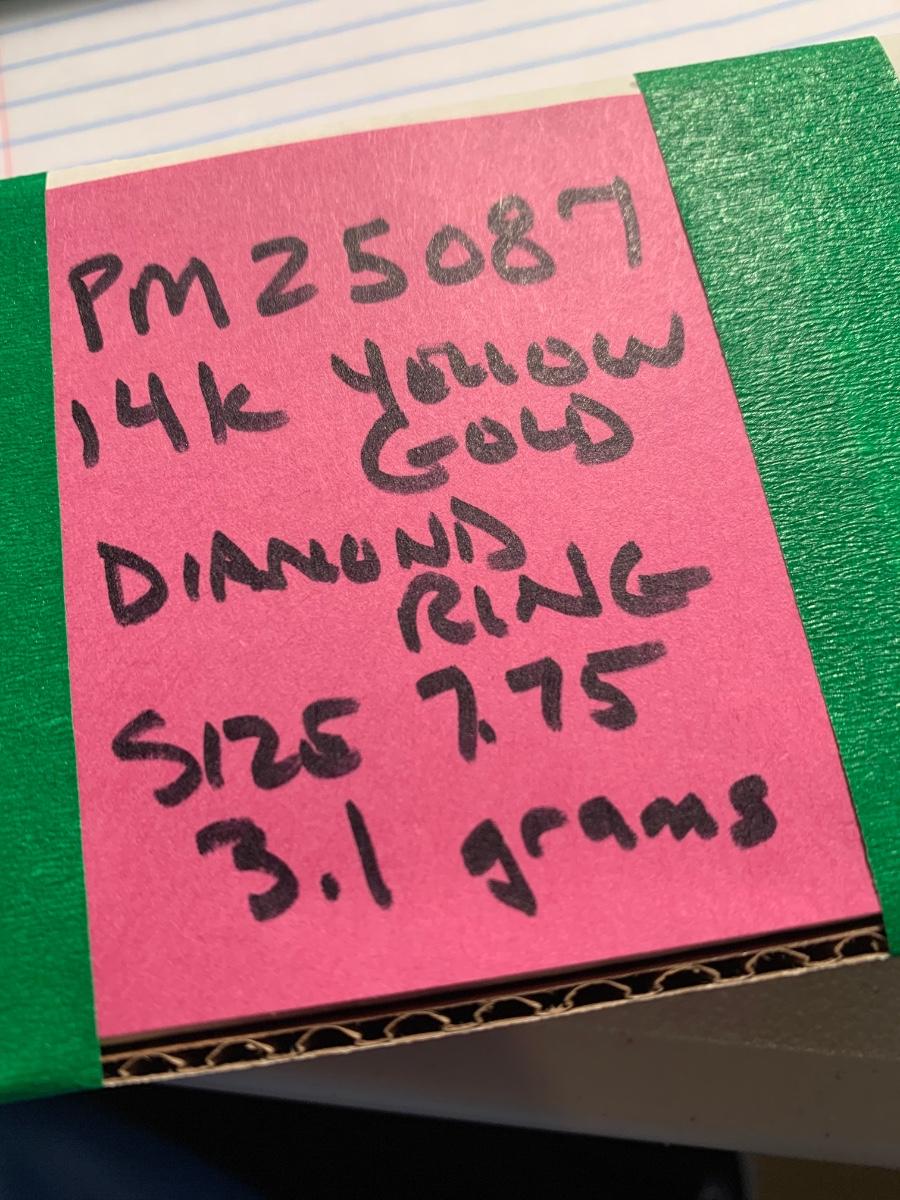 PM25087
14k YELLOW
GOLD
DIAMOND
RING
SIZE 7.75
3.1 grams